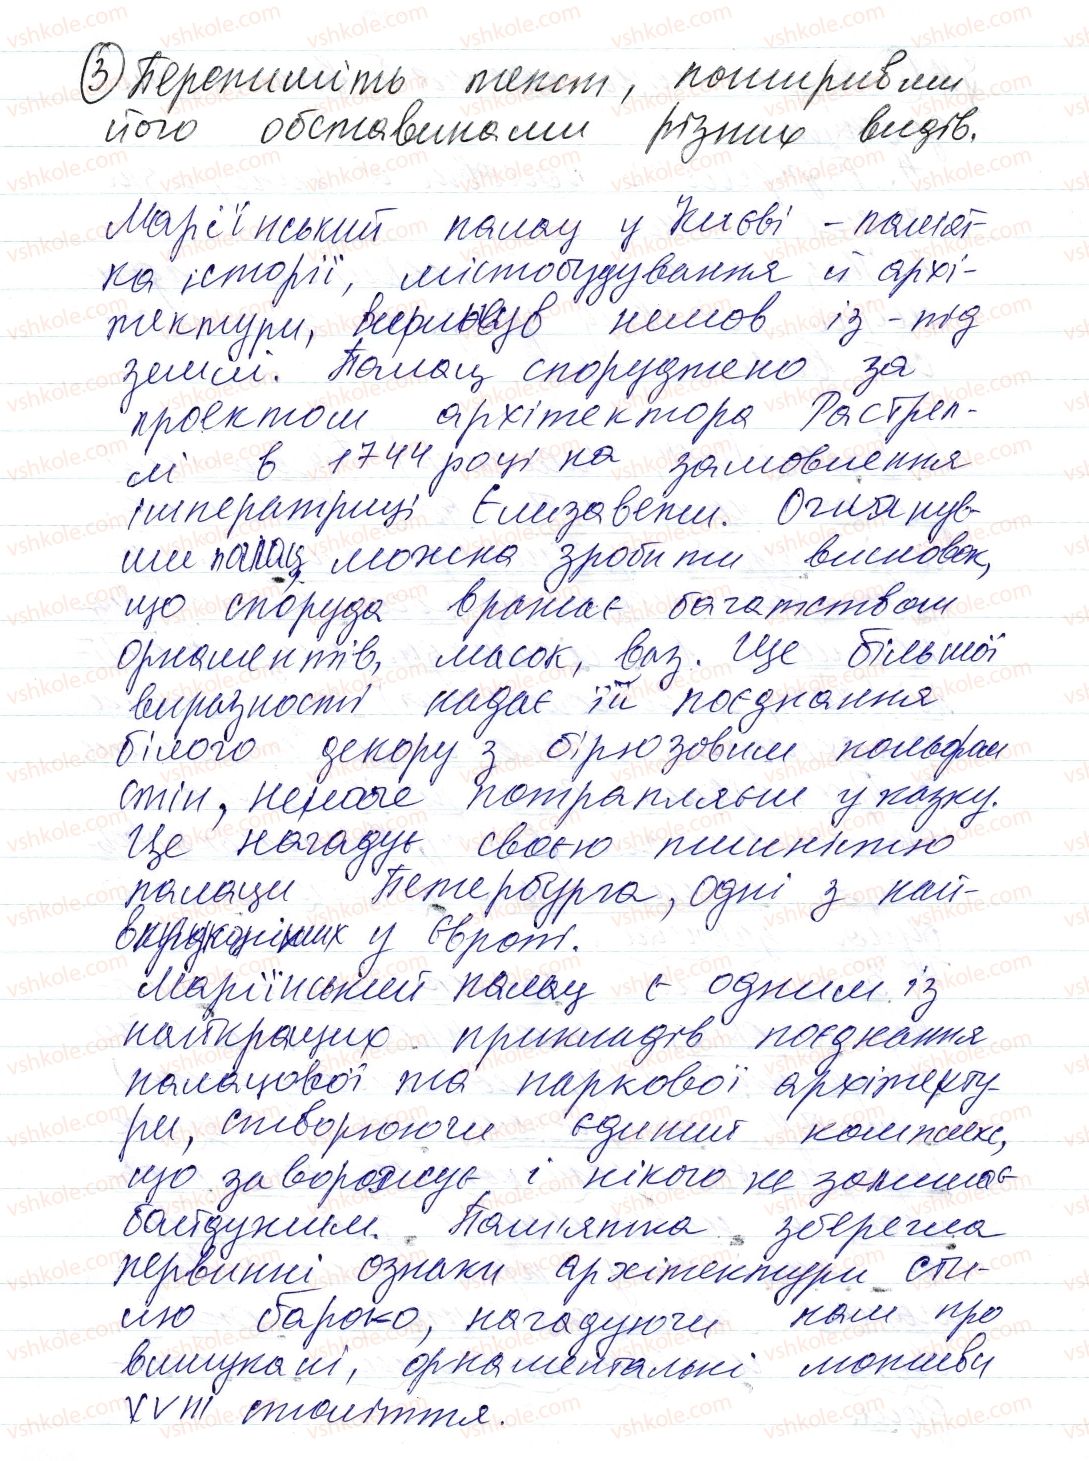 ③ Перепишіть текст, поширивши
його обставинами різних видів.
Маріїнський палац у Києві - пам'ят-
ка історії, містобудування й архі-
тектури, виринув немов із-під
землі. Палац споруджено за
проектом архітектора Растрел-
лі в 1744 році на замовлення
імператриці Єлизавети. Оглянув-
ши палац, можна зробити висновок,
що споруда вражає багатством
орнаментів, масок, ваз. Ще більшої
виразності надає їй поєднання
білого декору з бірюзовим кольором
стін, неначе потрапляєш у казку.
Це нагадує своєю пишністю
палаци Петербурга, одні з най-
у Європі.
Маріїнський палац є одним із
найкращих прикладів поєднання
палацової та паркової архітекту-
ри, створюючи єдиний комплекс,
що заворожує і нікого не залишає
байдужим. Пам'ятка зберегла
первинні ознаки архітектури сти-
лю бароко, нагадуючи нам про
вишукані, орнаментальні мотиви
XVIII століття.